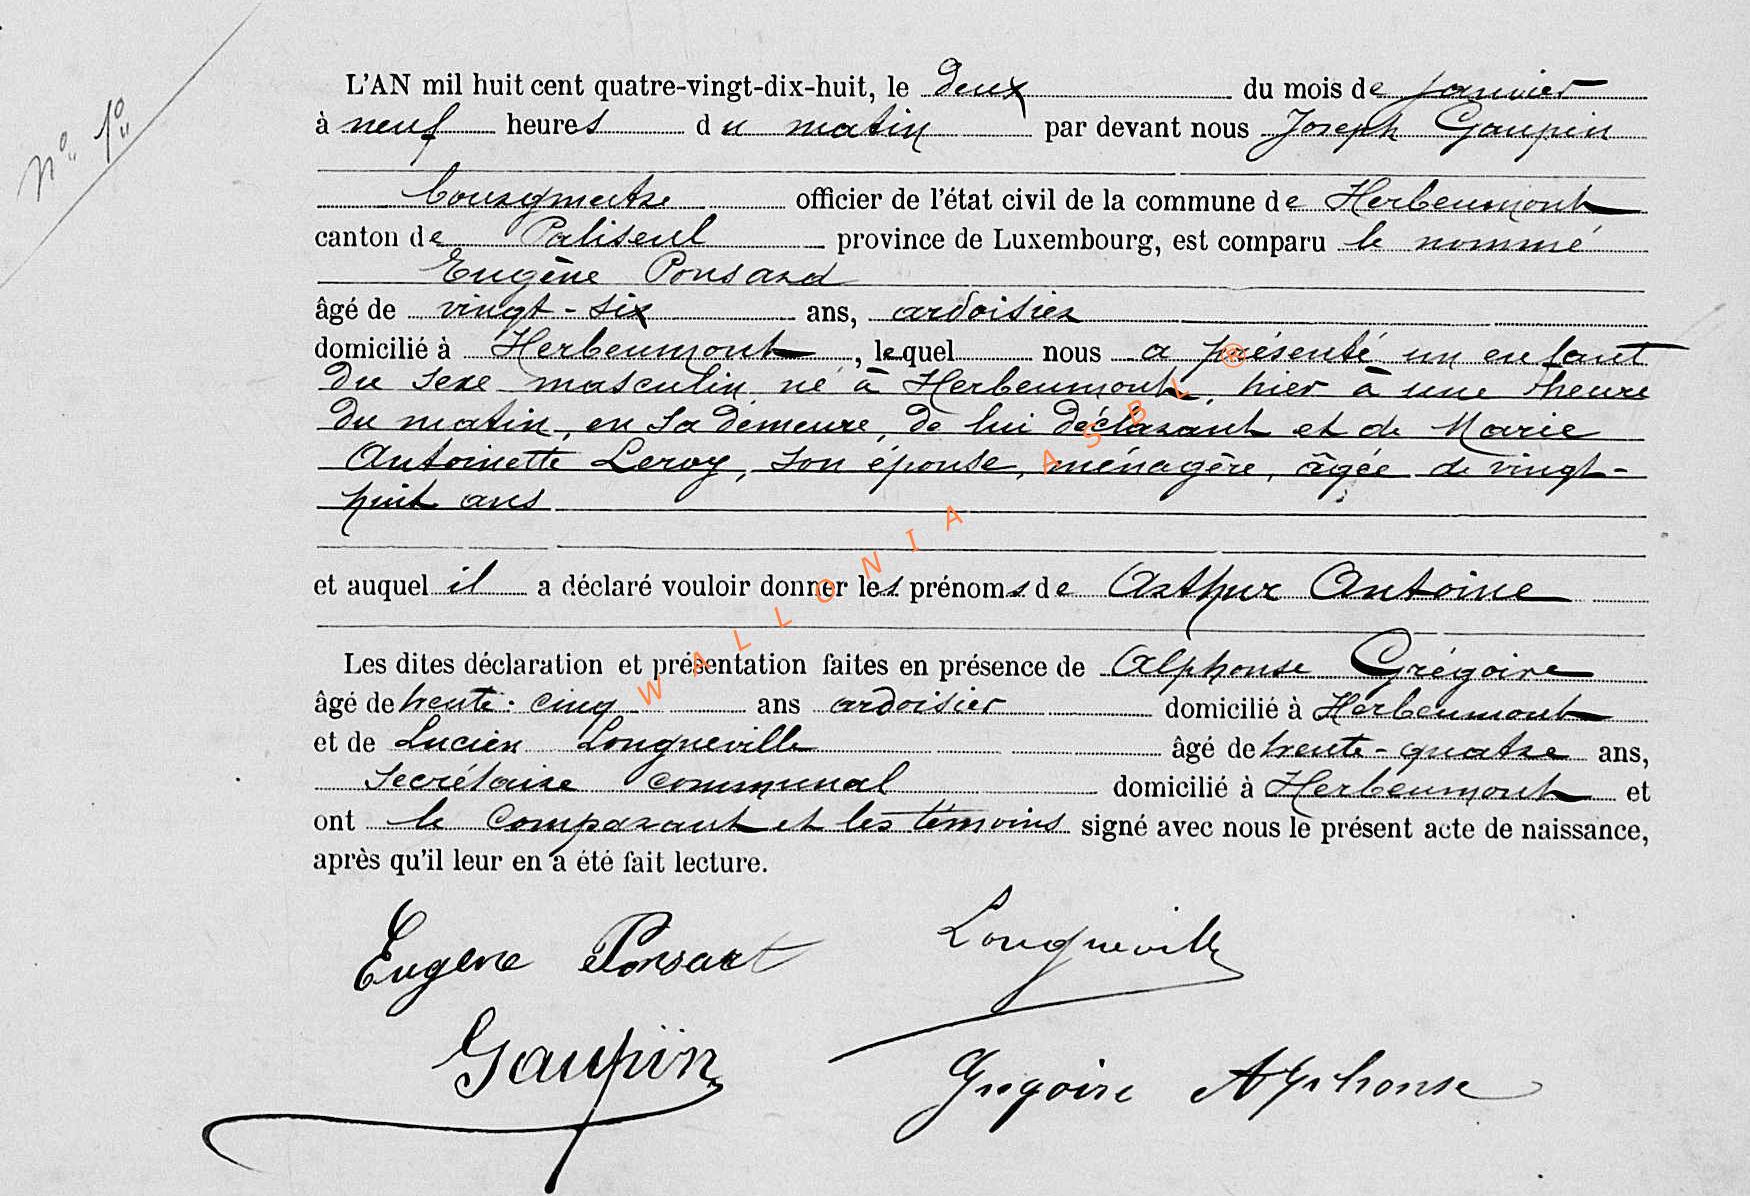 N° 1°
L'AN mil huit cent quatre-vingt-dix-huit, le deux du mois de janvier
à neuf heures du matin par devant nous Joseph Gaupin
Bourgmestre officier de l'état civil de la commune de Herbeumont
canton de Paliseul province de Luxembourg, est comparu le nommé
Eugène Ponsard
âgé de vingt-six ans, ardoisier
domicilié à Herbeumont, lequel nous a présenté un enfant
du sexe masculin né à Herbeumont, hier à une heure
du matin, en sa demeure, de lui déclarant et de Marie
Antoinette Leroy, son épouse, ménagère, âgée de vingt-
huit ans
et auquel il a déclaré vouloir donner les prénoms de Arthur Antoine
Les dites déclaration et présentation faites en présence de Alphonse Grégoire
âgé de trente-cinq ans ardoisier domicilié à Herbeumont
et de Lucien Longueville âgé de trente-quatre ans,
secrétaire communal domicilié à Herbeumont et
ont le comparant et les témoins signé avec nous le présent acte de naissance,
après qu'il leur en a été fait lecture.
Eugène Ponsart Longueville
Gaupin Grégoire Alphonse
WALLONIA ASBL ®